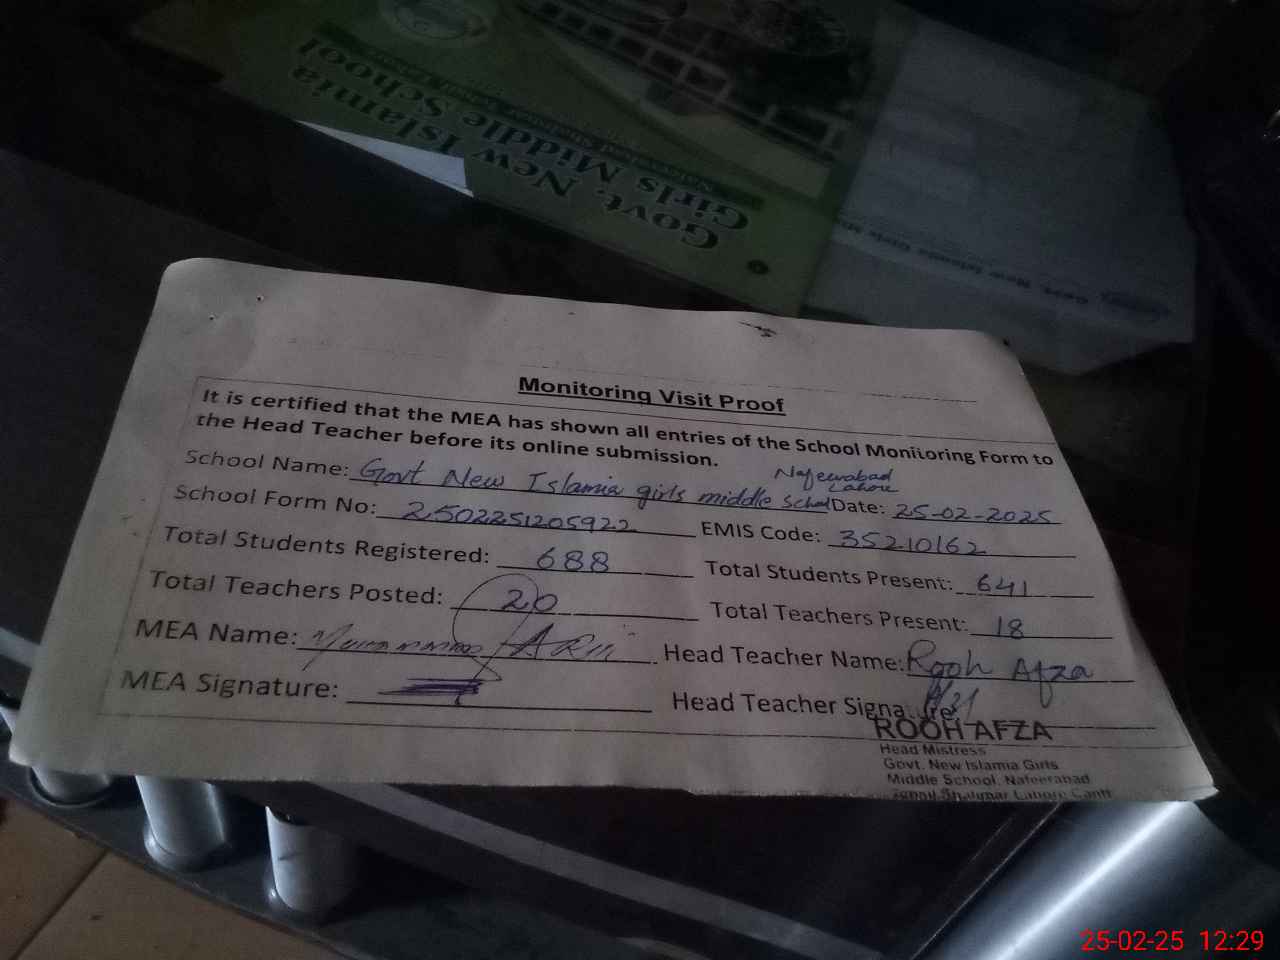 Govt. New Islamia
Girls Middle School
Govt. New Islamia Girls
Monitoring Visit Proof
It is certified that the MEA has shown all entries of the School Monitoring Form to
the Head Teacher before its online submission.
School Name: Govt New Islamia girls middle School Nafeerabad Lahore Date: 25-02-2025
School Form No: 2502251205922 EMIS Code: 35210162
Total Students Registered: 688 Total Students Present: 641
Total Teachers Posted: 20 Total Teachers Present: 18
MEA Name: Head Teacher Name: Rooh Afza
MEA Signature: Head Teacher Signature:
ROOH AFZA
Head Mistress
Govt. New Islamia Girls
Middle School, Nafeerabad
Shalymar Lahore Cantt
25-02-25 12:29